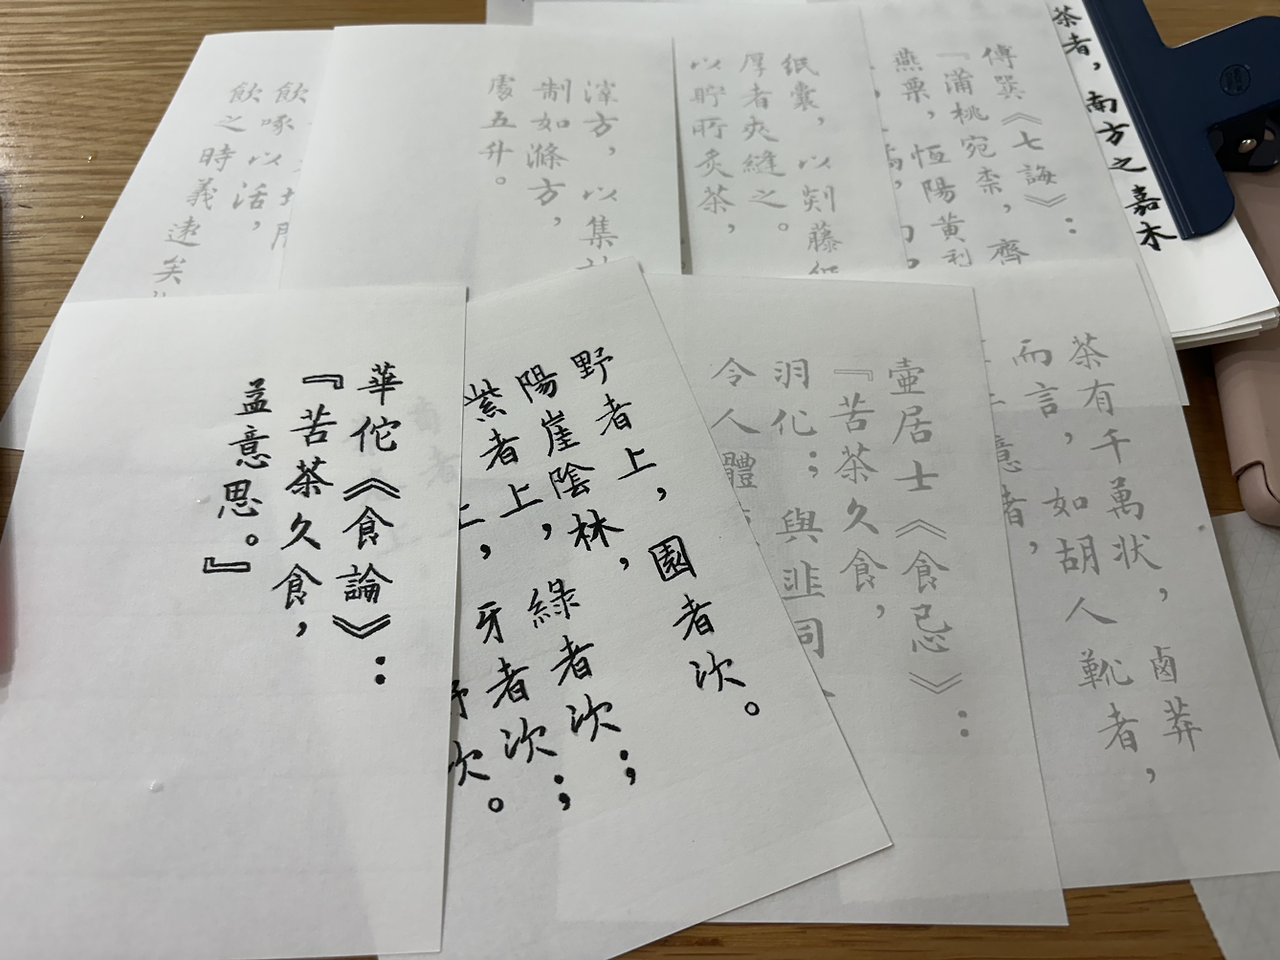 茶者，南方之嘉木
傅巽《七誨》：
『蒲桃宛柰，齊
燕栗，恆陽黃利
纸囊，以剡藤
厚者夾縫之。
以貯所炙茶，
滓方，以集
制如滌方，
處五升。
飲啄以活，
飲之時義遠矣
茶有千萬状，鹵莽
而言，如胡人靴者，
意者，
壺居士《食忌》：
『苦茶久食，
羽化；與韭同
令人體
野者上，園者次。
陽崖陰林，
紫者上，綠者次；
上，牙者次；
次。
華佗《食論》：
『苦茶久食，
益意思。』